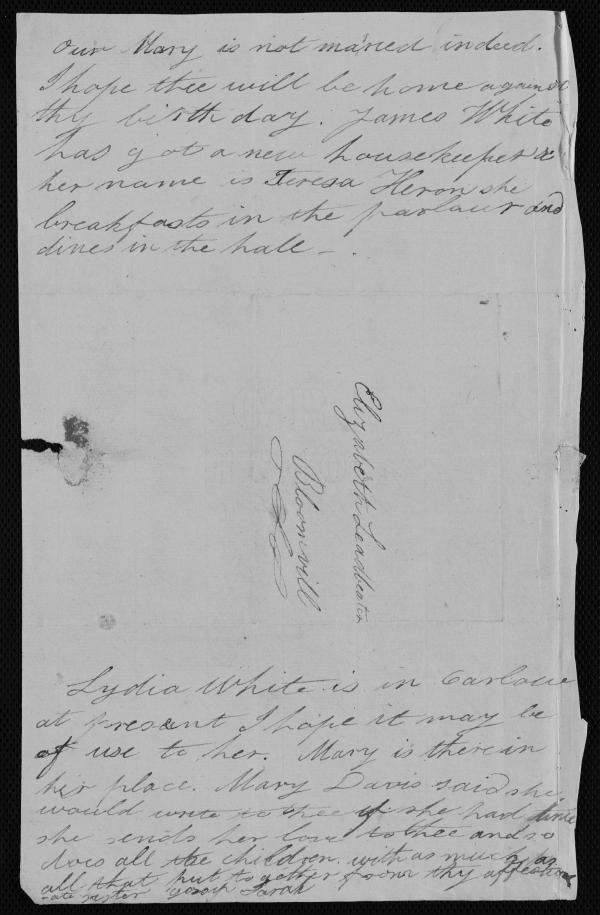 Our Mary is not maried indeed.
I hope thee will be home against
thy birth day. James White
has got a new housekeeper &
her name is Teresa Heron she
breakfasts in the parlour and
dines in the hall -
Elizabeth Leadbeater
Bloomvill
Lydia White is in Carlow
at present I hope it may be
of use to her. Mary is there in
her place. Mary Davis said she
would write to thee if she had time
she sends her love to thee and so
does all the children. with as much as
all that put together from thy affection
-ate sister Sarah